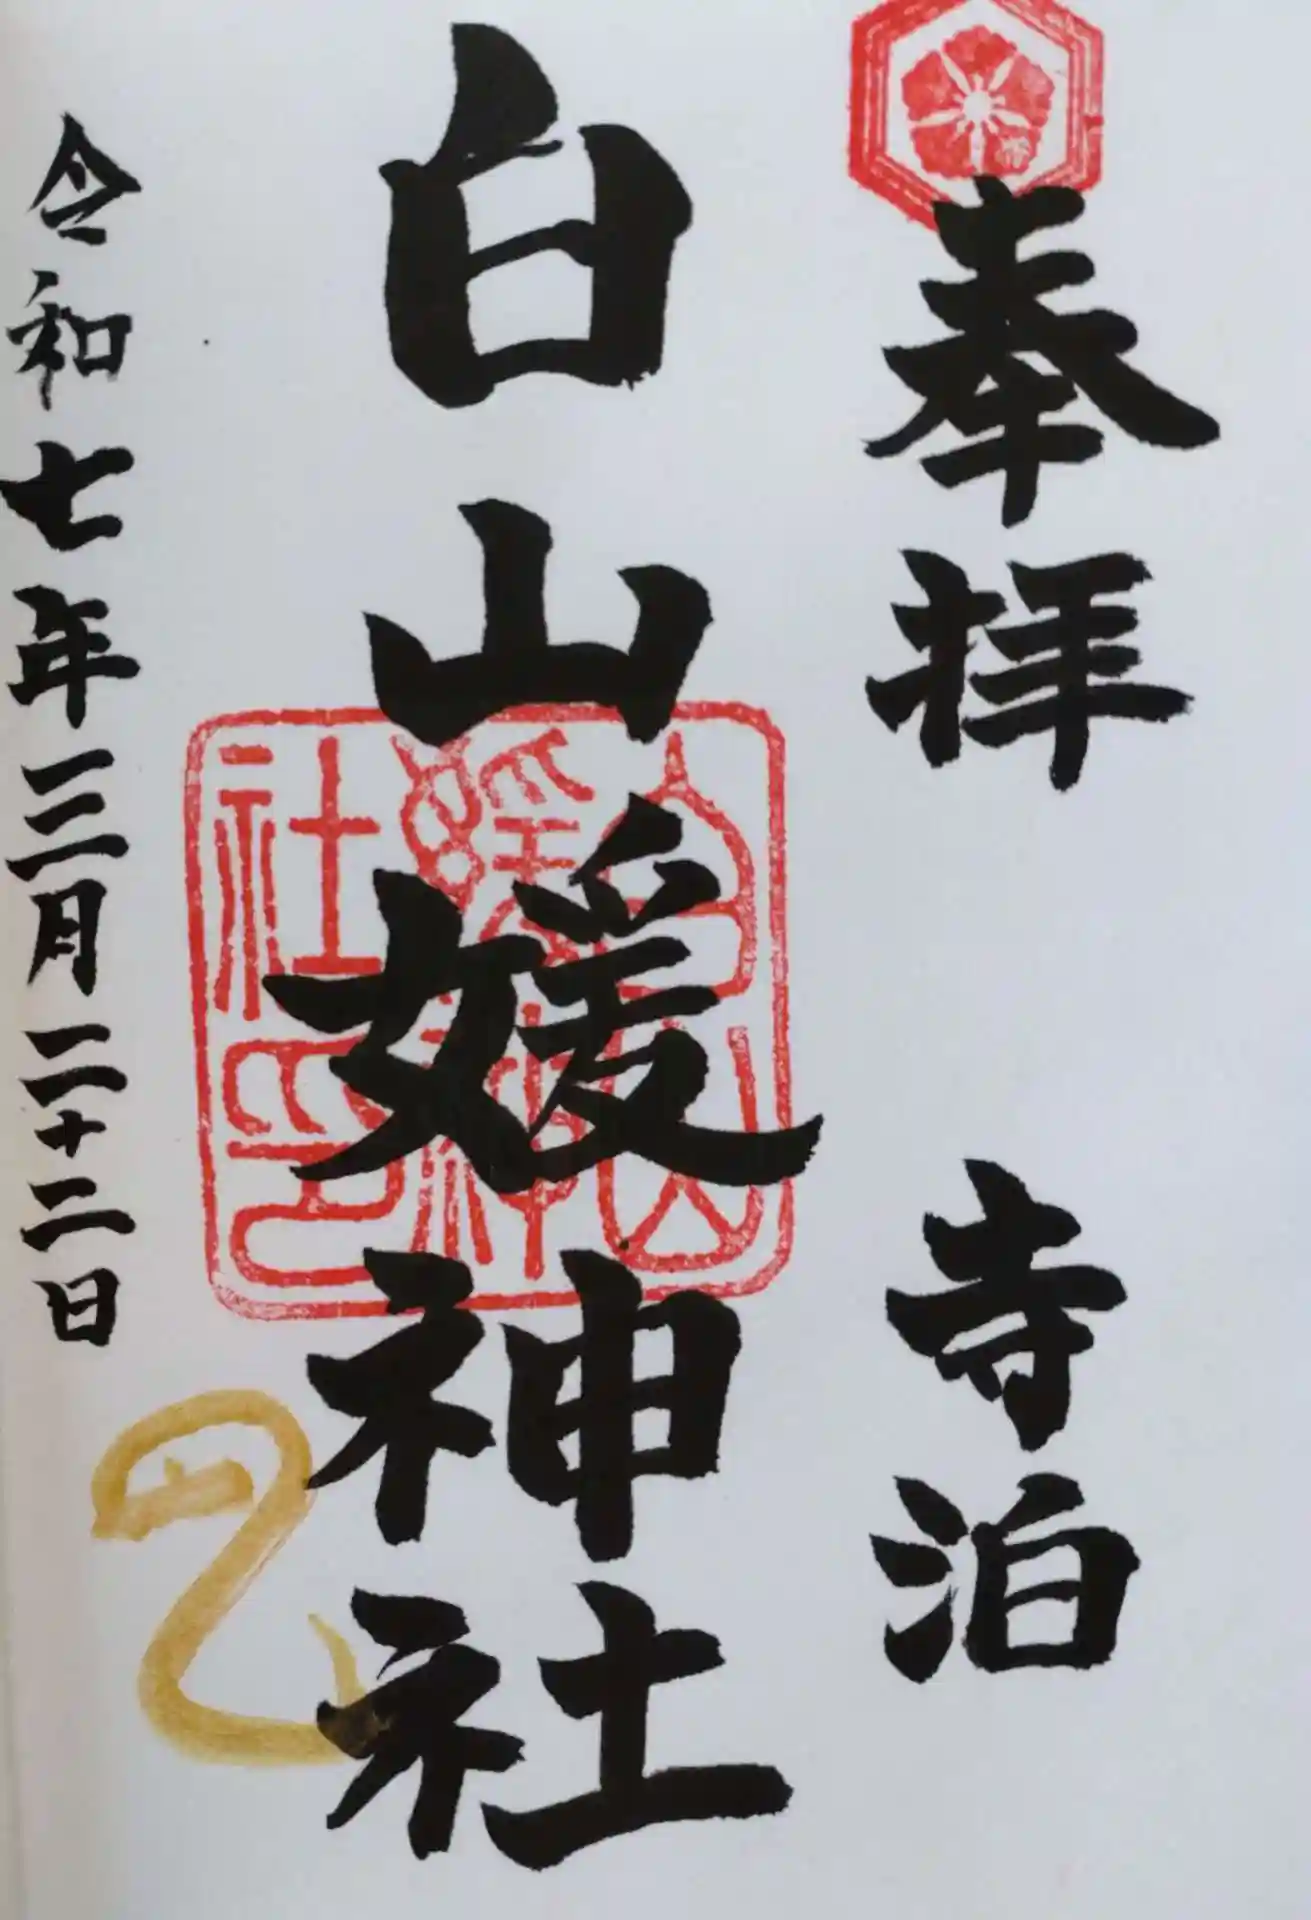 奉拝 寺泊
白山媛神社
白山媛神社印
令和七年三月二十二日